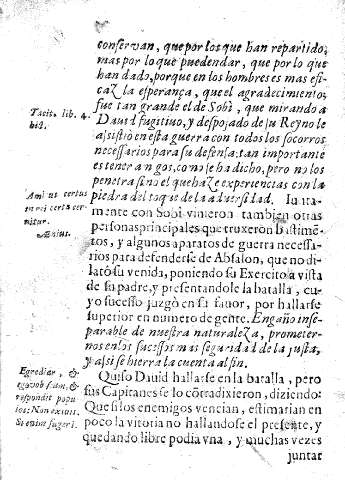 conservan, que por los que han repartido;
mas por lo que pueden dar, que por lo que
han dado, porque en los hombres es mas efi-
caz la esperança, que el agradecimiento;
fue tan grande el de Sobi, que mirando a
Dauid fugitiuo, y despojado de su Reyno le
assistiò en esta guerra con todos los socorros
necessarios para su defensa: tan importante
es tener amigos, como se ha dicho, pero no los
penetra sino el que haze experiencias con la
piedra del toque de la aduersidad. Iunta-
mente con Sobi vinieron tambien otras
personas principales que truxeron Bastimē-
tos, y algunos aparatos de guerra necessa-
rios para defenderse de Absalon, que no di-
latò su venida, poniendo su Exercito a vista
de su padre, y presentandole la batalla, cu-
yo sucesso juzgò en su fauor, por hallarse
superior en numero de gente. Engaño inse-
parable de nuestra naturaleza, prometer-
nos en los sucessos mas seguridad de la justa,
y assi se hierra la cuenta al fin.
Quiso Dauid hallarse en la batalla, pero
sus Capitanes se lo cōtradixeron, diziendo:
Que si los enemigos vencian, estimarian en
poco la vitoria no hallandose el presente, y
quedando libre podia vna, y muchas vezes
juntar
Tacit. lib. 4.
hist.
Amicus certus
in re incerta cer-
nitur.
Ennius.
Egrediar, &
ego vobiscum, &
respondit popu-
lus: Non exibis.
Siue enim fugeri.